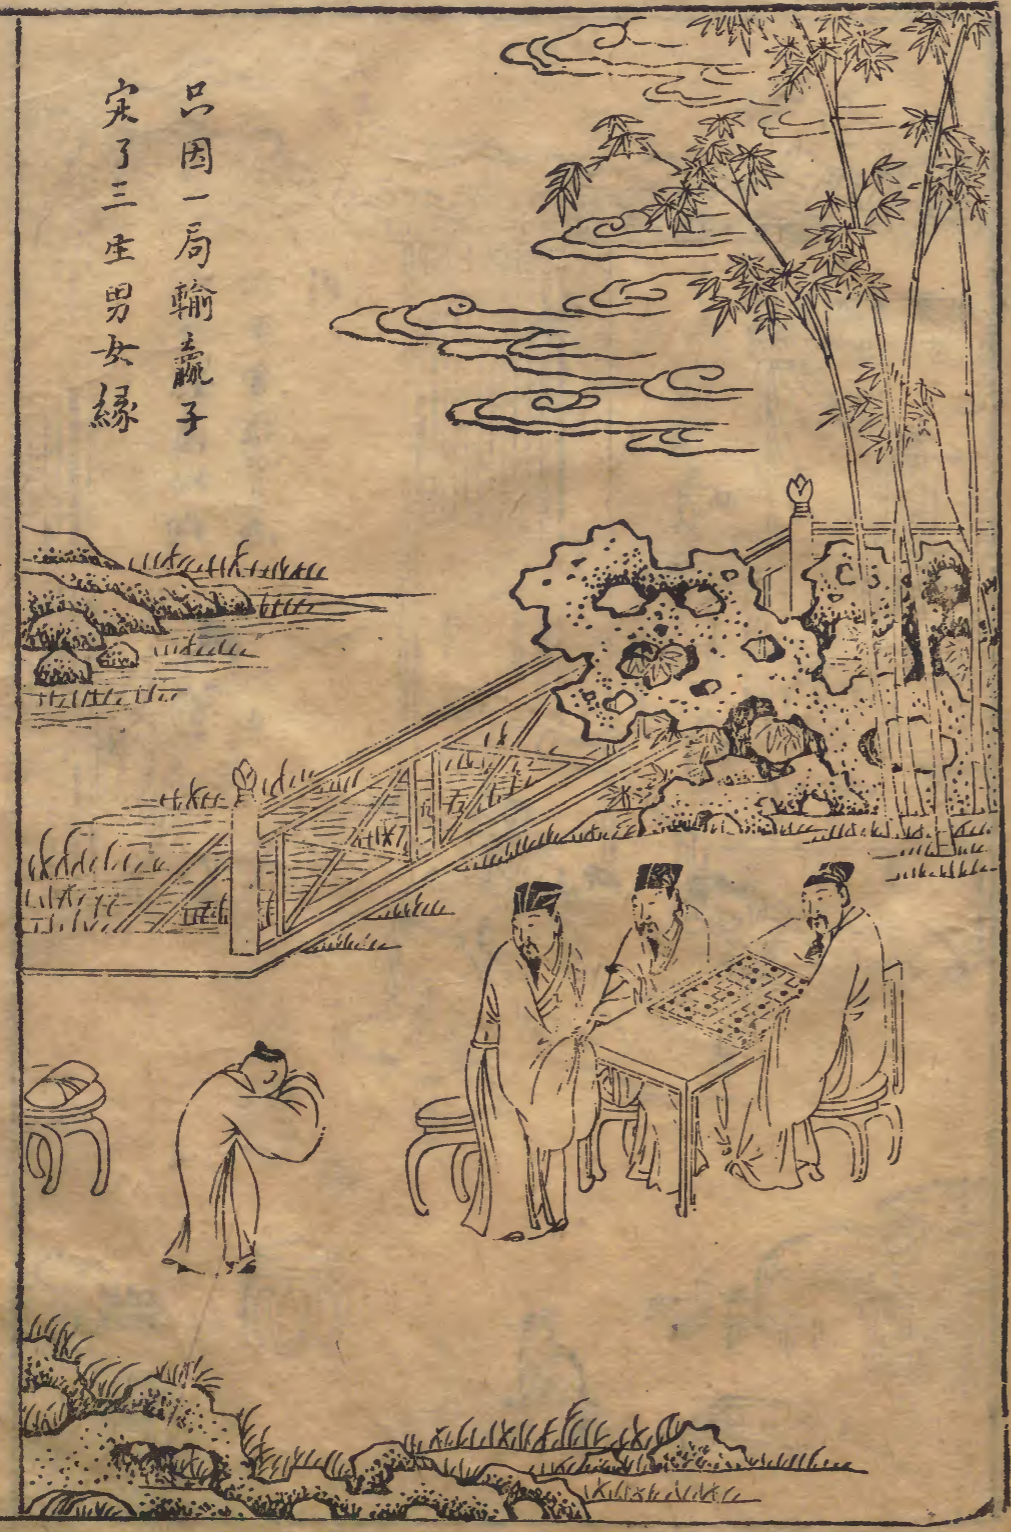 只因一局輸贏子
定了三生男女緣